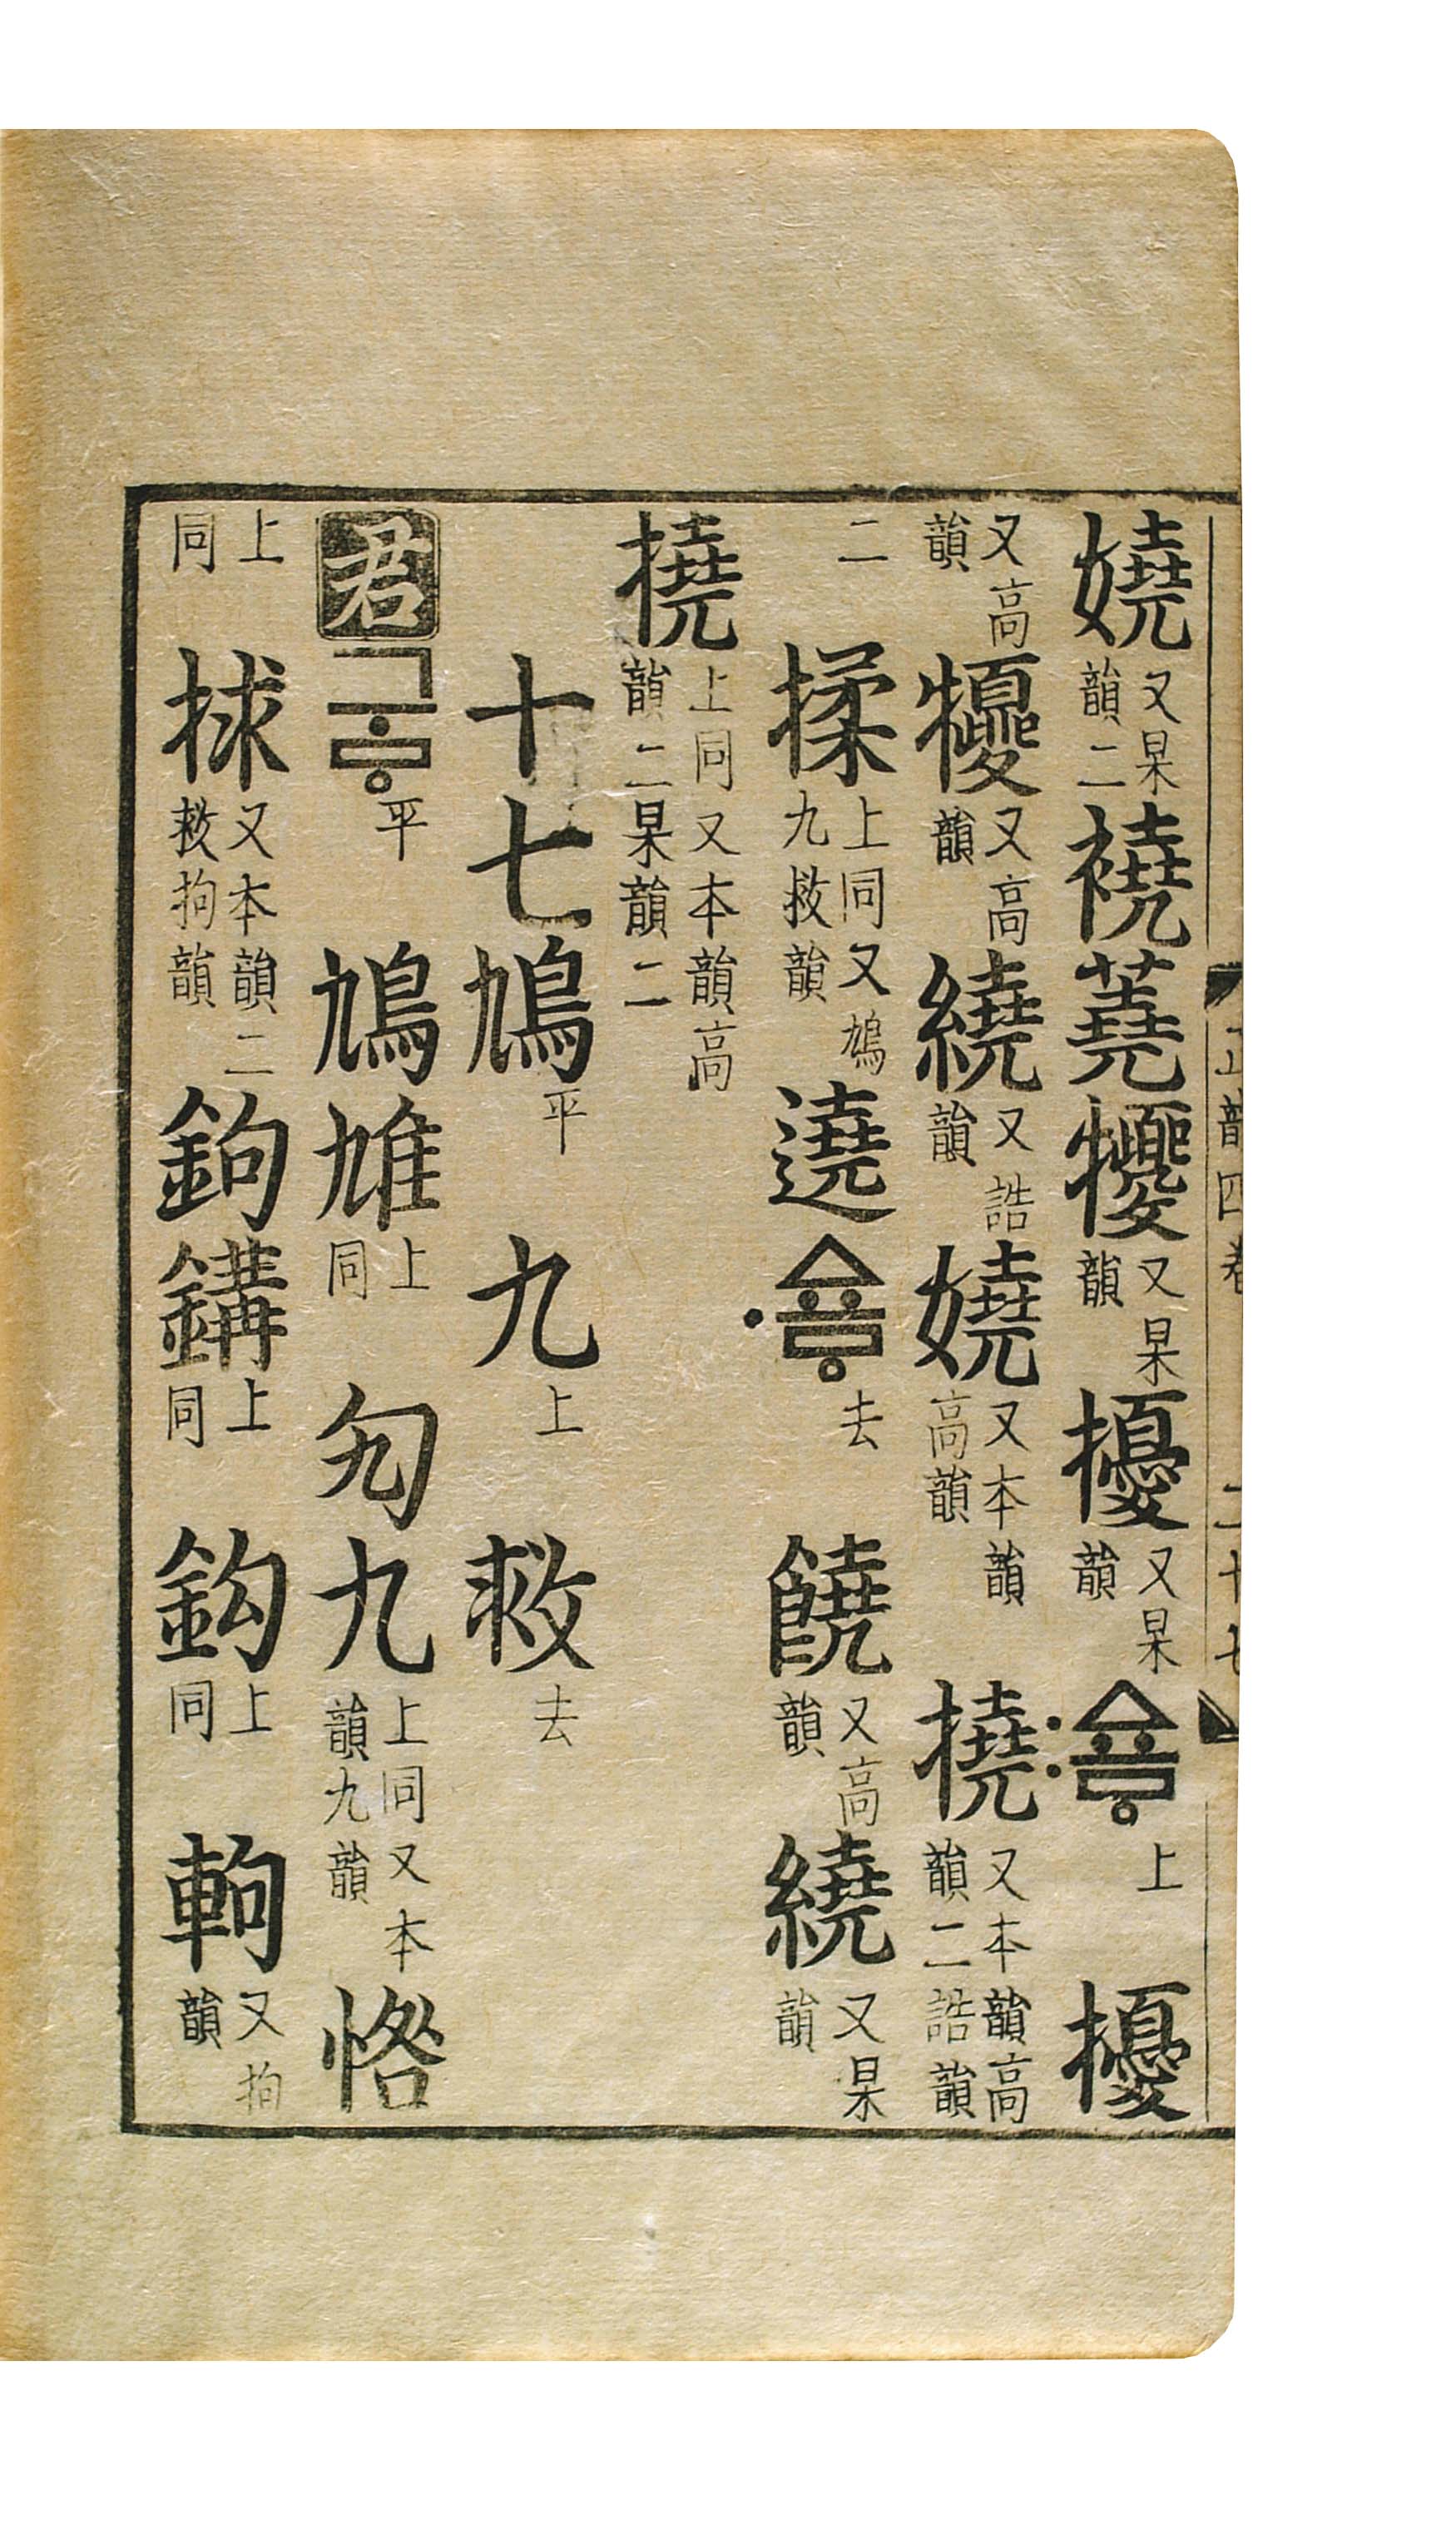 嬈又杲韻二襓蕘犪又杲韻擾又杲韻上擾
又高韻㹛又高韻繞又誥韻嬈又本韻高韻撓又本韻高韻二誥韻
二揉上同又鳩九救韻遶去饒又高韻繞又杲韻
撓上同又本韻高韻二杲韻二
十七鳩平九上救去
君平鳩上同勼九上同又本韻九韻
上同捄又本韻二救拘韻鉤鏂上同鈎上同軥又拘韻